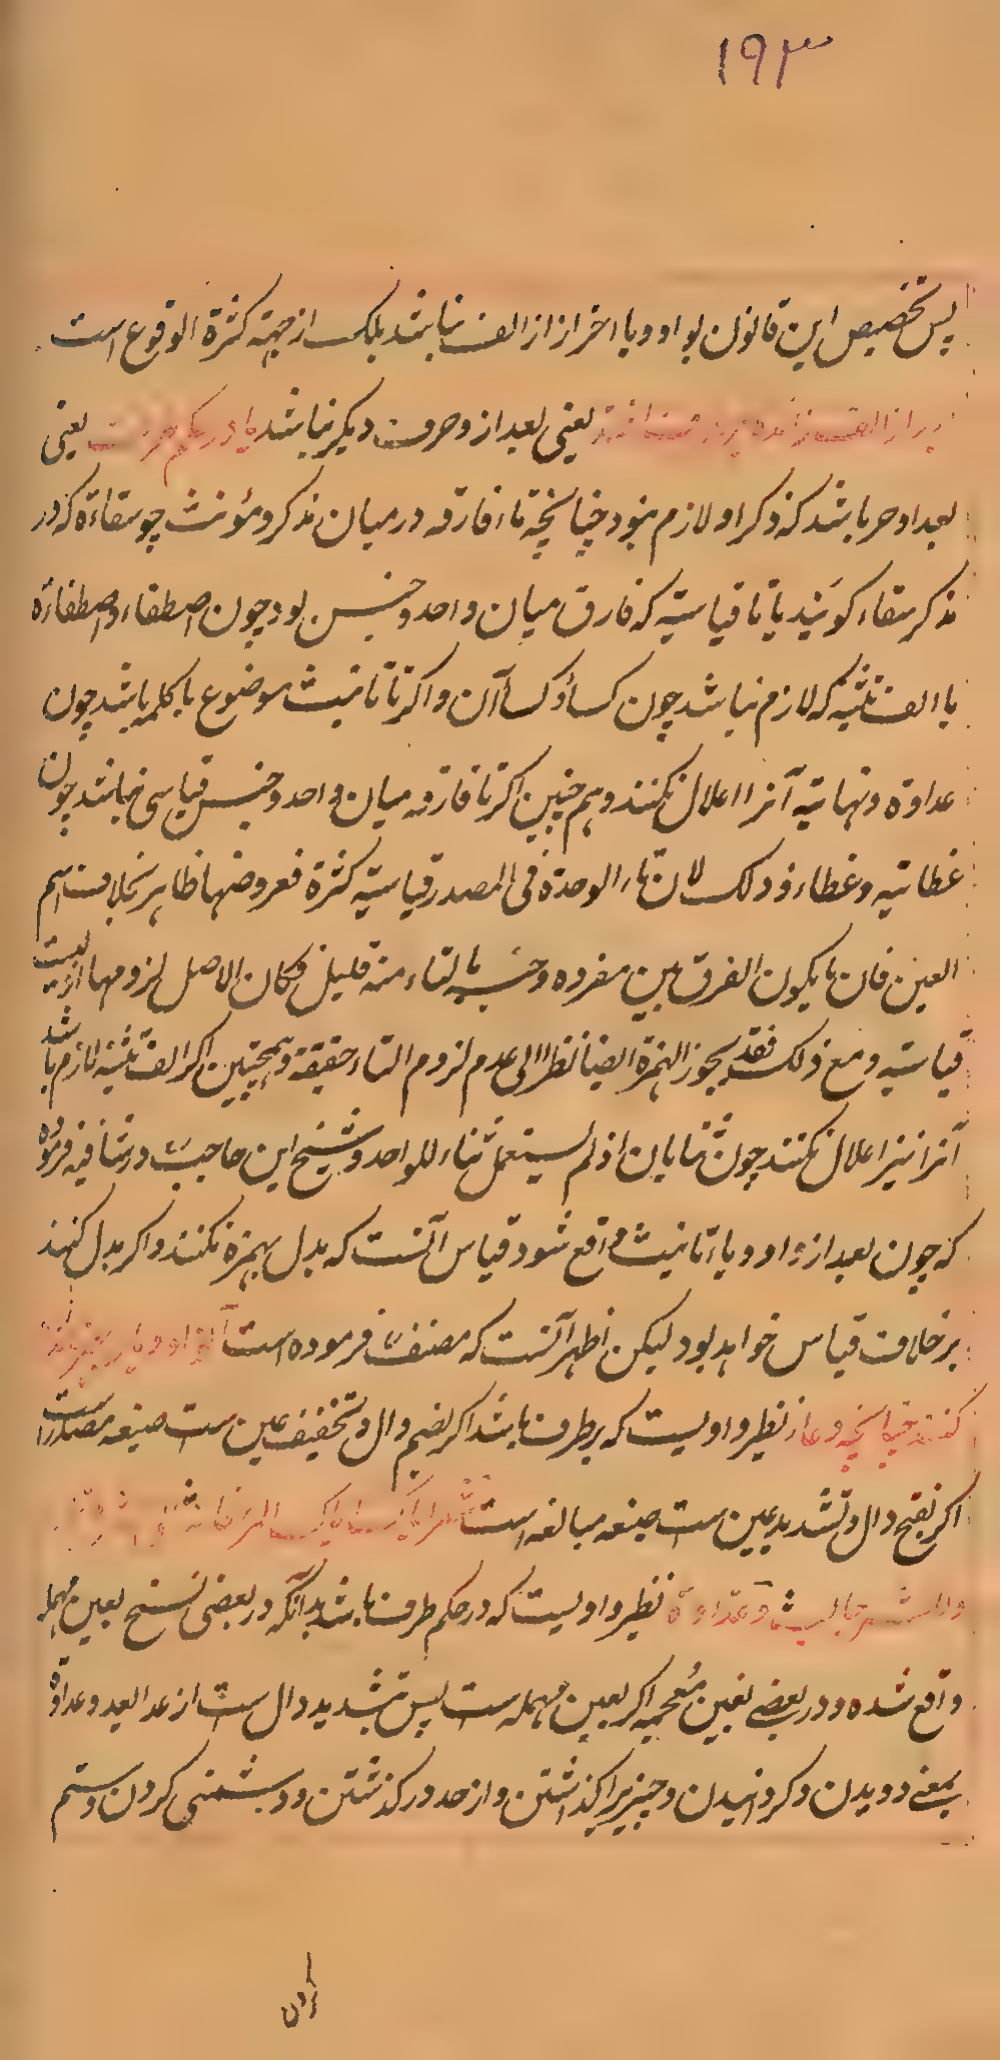 ١٩٣
پس تخصیص این قانون بواو و یا احتراز از الف نباشد بلکه از جهة کثرة الوقوع است
الف زائده بر طرف باشد یعنی بعد از و حرف دیکر نباشد یا در حکم طرف یعنی
بعد او حر باشد که ذکر او لازم نبود چنانچه تاء فارقه در میان مذکر و مؤنث چو سقاءة که در
مذکر سقاء کویند یا تا قیاسیته که فارق میان واحد و جنس بود چون اصطفاء و اصطفاءة
یا الف تثنیه که لازم نباشد چون کساء و کساآن و اکر تا تانیث موضوع با کلمه باشد چون
عداوة و نهایته آنرا اعلال نکنند و هم چنین اکر تا فارقه میان واحد و جنس قیاسی نباشد چون
غطایته و غطاء و ذلک لان تاء الوحدة فی المصدر قیاسیته کثرة فعروضها ظاهر بخلاف اسم
العین فان ما یکون الفرق بین مفرده و جنسه بالتاء منه قلیل فکان الاصل لزومها اذ لیست
قیاسیته و مع ذلک فقد یجوز الهمزة ایضا نظرا الی عدم لزوم التاء حقیقة و همچنین اکر الف تثنیه لازم باشد
آنرا نیز اعلال نکنند چون ثنایان اذ لم یستعمل ثناء للواحد و شیخ ابن حاجب در شافیه فرموده
که چون بعد از واو و یاء تانیث واقع شود قیاس آنست که بدل بهمزه نکنند و اکر بدل کنند
بر خلاف قیاس خواهد بود لیکن اظهر آنست که مصنف فرموده است آن واو و یا را همزه
کنند چنانچه دعاء نظیر واویست که بر طرف باشد اکر بضم دال و تخفیف عین ست صیغه مصدر است
اکر بفتح دال و تشدید عین ست صیغه مبالغه است
و عداوة نظیر واویست که در حکم طرف باشد بدآنکه در بعضی نسخ بعین مهمله
واقع شده و در بعضے بغین معجمه اکر بعین مهمله ست پس بتشدید دال ست از عدا یعد و عداوة
بمعنے دویدن و کردانیدن و چیزیرا کذاشتن و از حد درکذشتن و دشمنی کردن و ستم